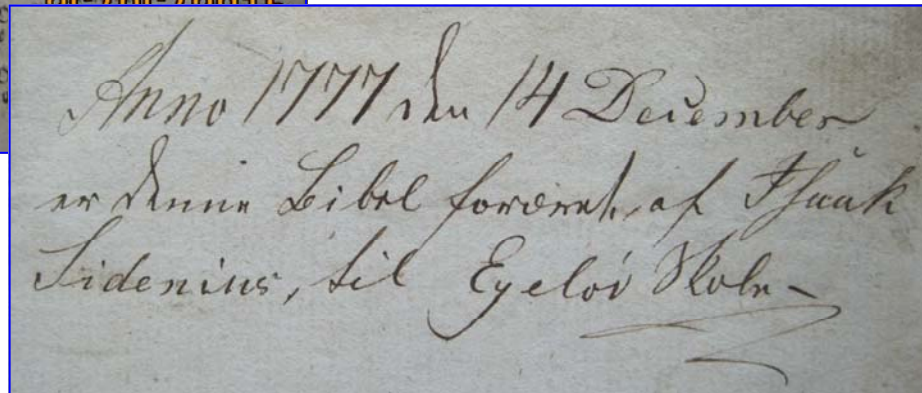 Anno 1777 den 14 December
er denne Bibel foræret af Isaak
Sidenius, til Egeløv Skole